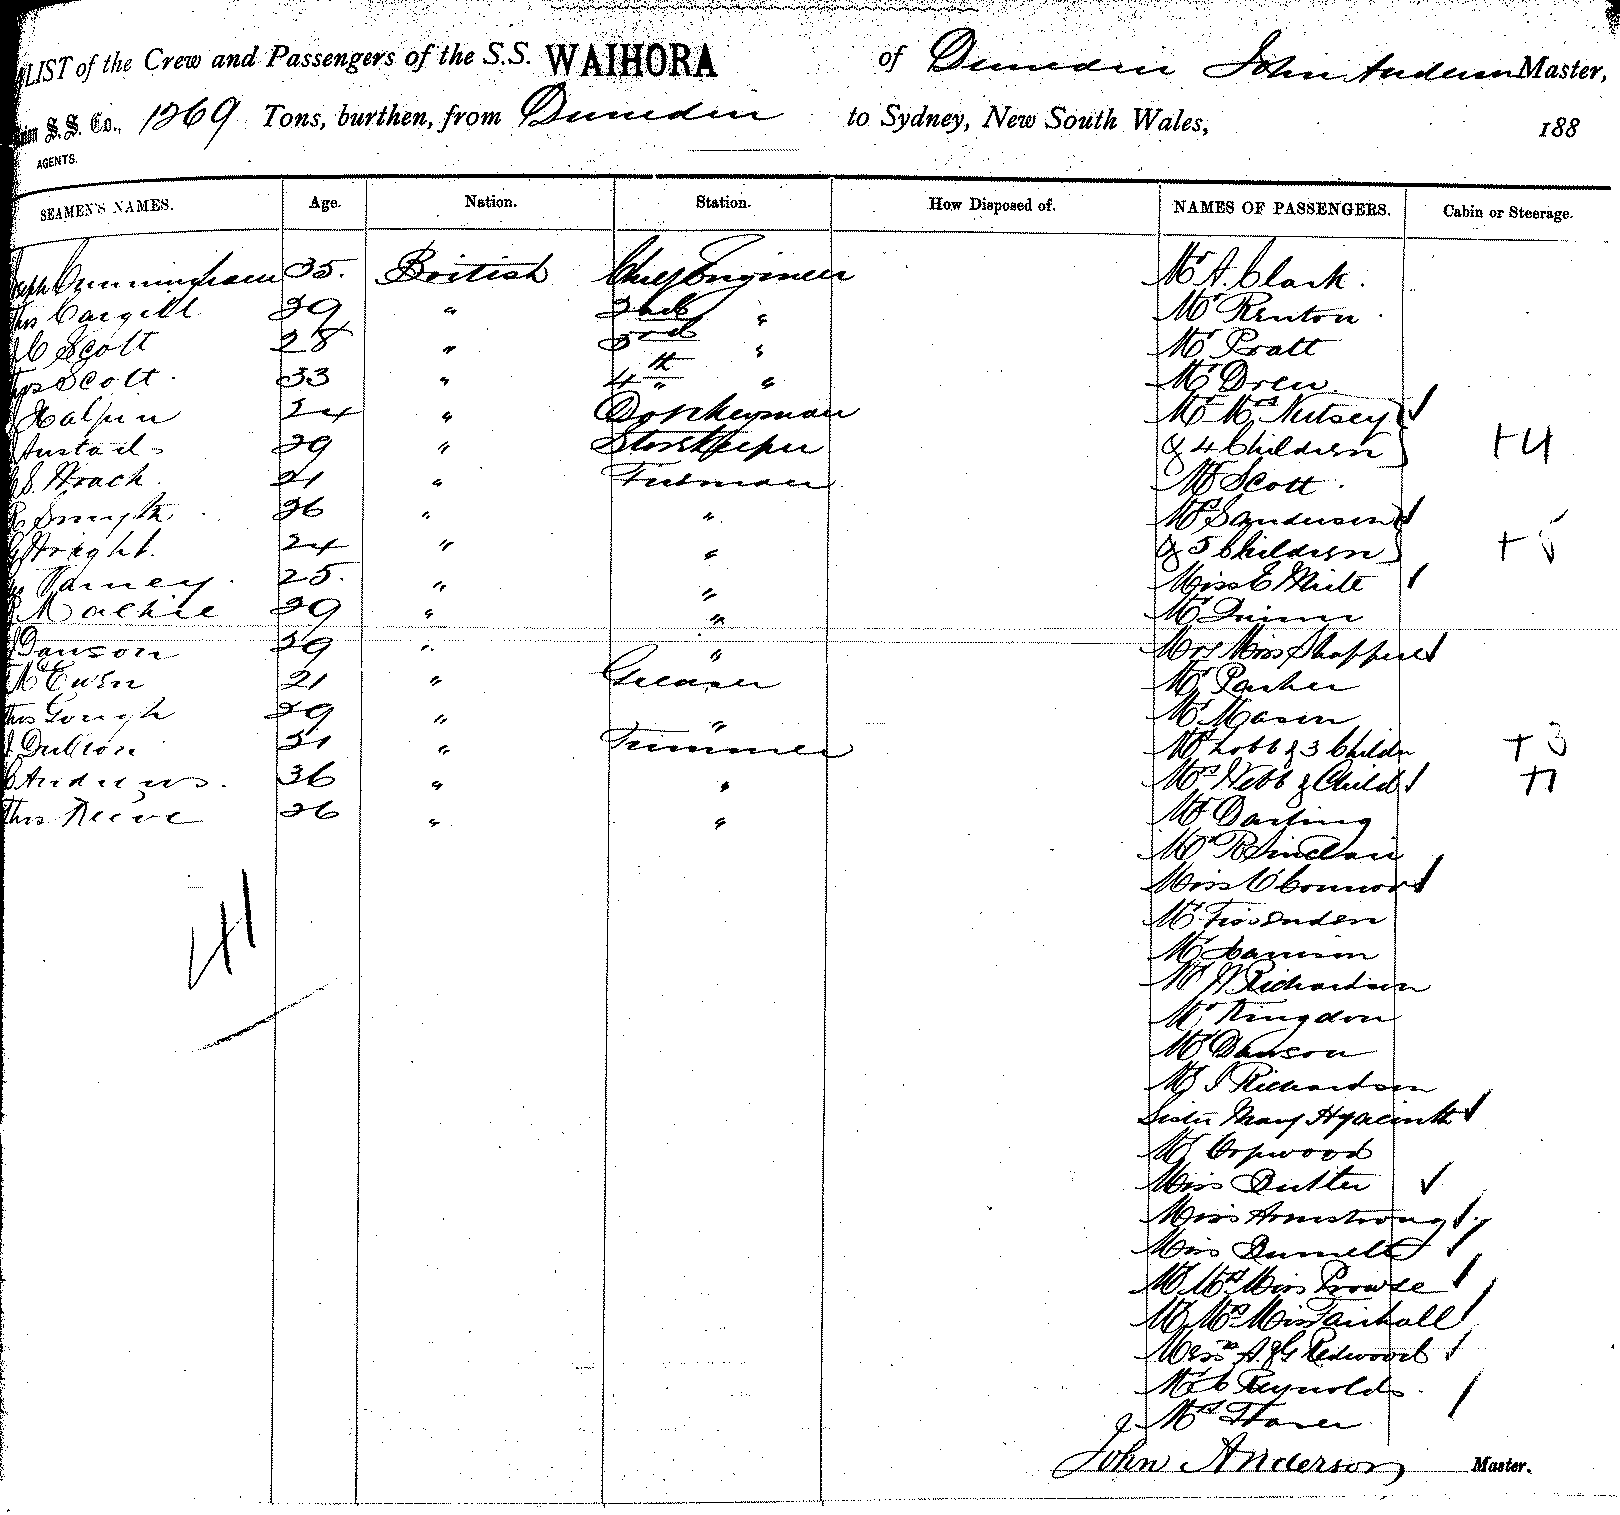 LIST of the Crew and Passengers of the S.S. WAIHORA of Dunedin John Anderson Master,
S. S. Co., 1269 Tons, burthen, from Dunedin to Sydney, New South Wales, 188
AGENTS.
SEAMEN'S NAMES. Age. Nation. Station. How Disposed of. NAMES OF PASSENGERS. Cabin or Steerage.
Cunningham 35. British Chief Engineer Mr A. Clark.
Thos Cargill 29 " 2nd " Mr Renton
C Scott 28 " 3rd " Mr Pratt
Scott 33 " 4th " " Mr Drew
Halpin 24 " Donkeyman Mr Mrs Nutsey
29 " Storekeeper & 4 Children +4
21 " Fireman Mr Scott
Smyth 26 " " Mrs Sanderson
24 " " & 5 Children +5
25. " " Miss E White
Mackie 29 " " Mr Quinn
Dawson 29 " " Mrs Miss
McEwen 21 " Greaser Mr Parker
Thos Gough 29 " " Mr Mason
31 " Trimmer Mr Lobb & 3 Childn +3
Andrews. 36 " " Mrs Webb & Child +1
Thos Reeve 26 " " Mr Darling
Mr R Sinclair
Miss O'Connor
41
Mr
Mr
Mr W Richardson
Mr Kingdon
Mr Dawson
Mr J Richardson
Sister Mary Hyacinth
Mr Copwood
Miss Butler
Miss Armstrong
Miss
Mr Mrs Miss Prowse
Mr Mrs Miss Fairhall
Messrs A & G Redwood
Mr C Reynolds
& Mrs
John Anderson Master.